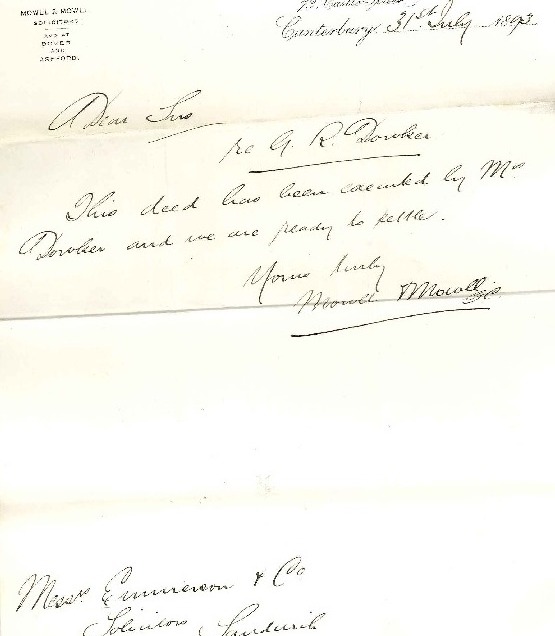 MOWLL & MOWLL
SOLICITORS
AND AT
DOVER
AND
ASHFORD.
Canterbury, 31st July 1893
Dear Sirs
re G. R. Dowker
This deed has been executed by Mr
Dowker and we are ready to settle.
Yours truly
Mowll & Mowll
Messrs Emmerson & Co
Solicitors Sandwich